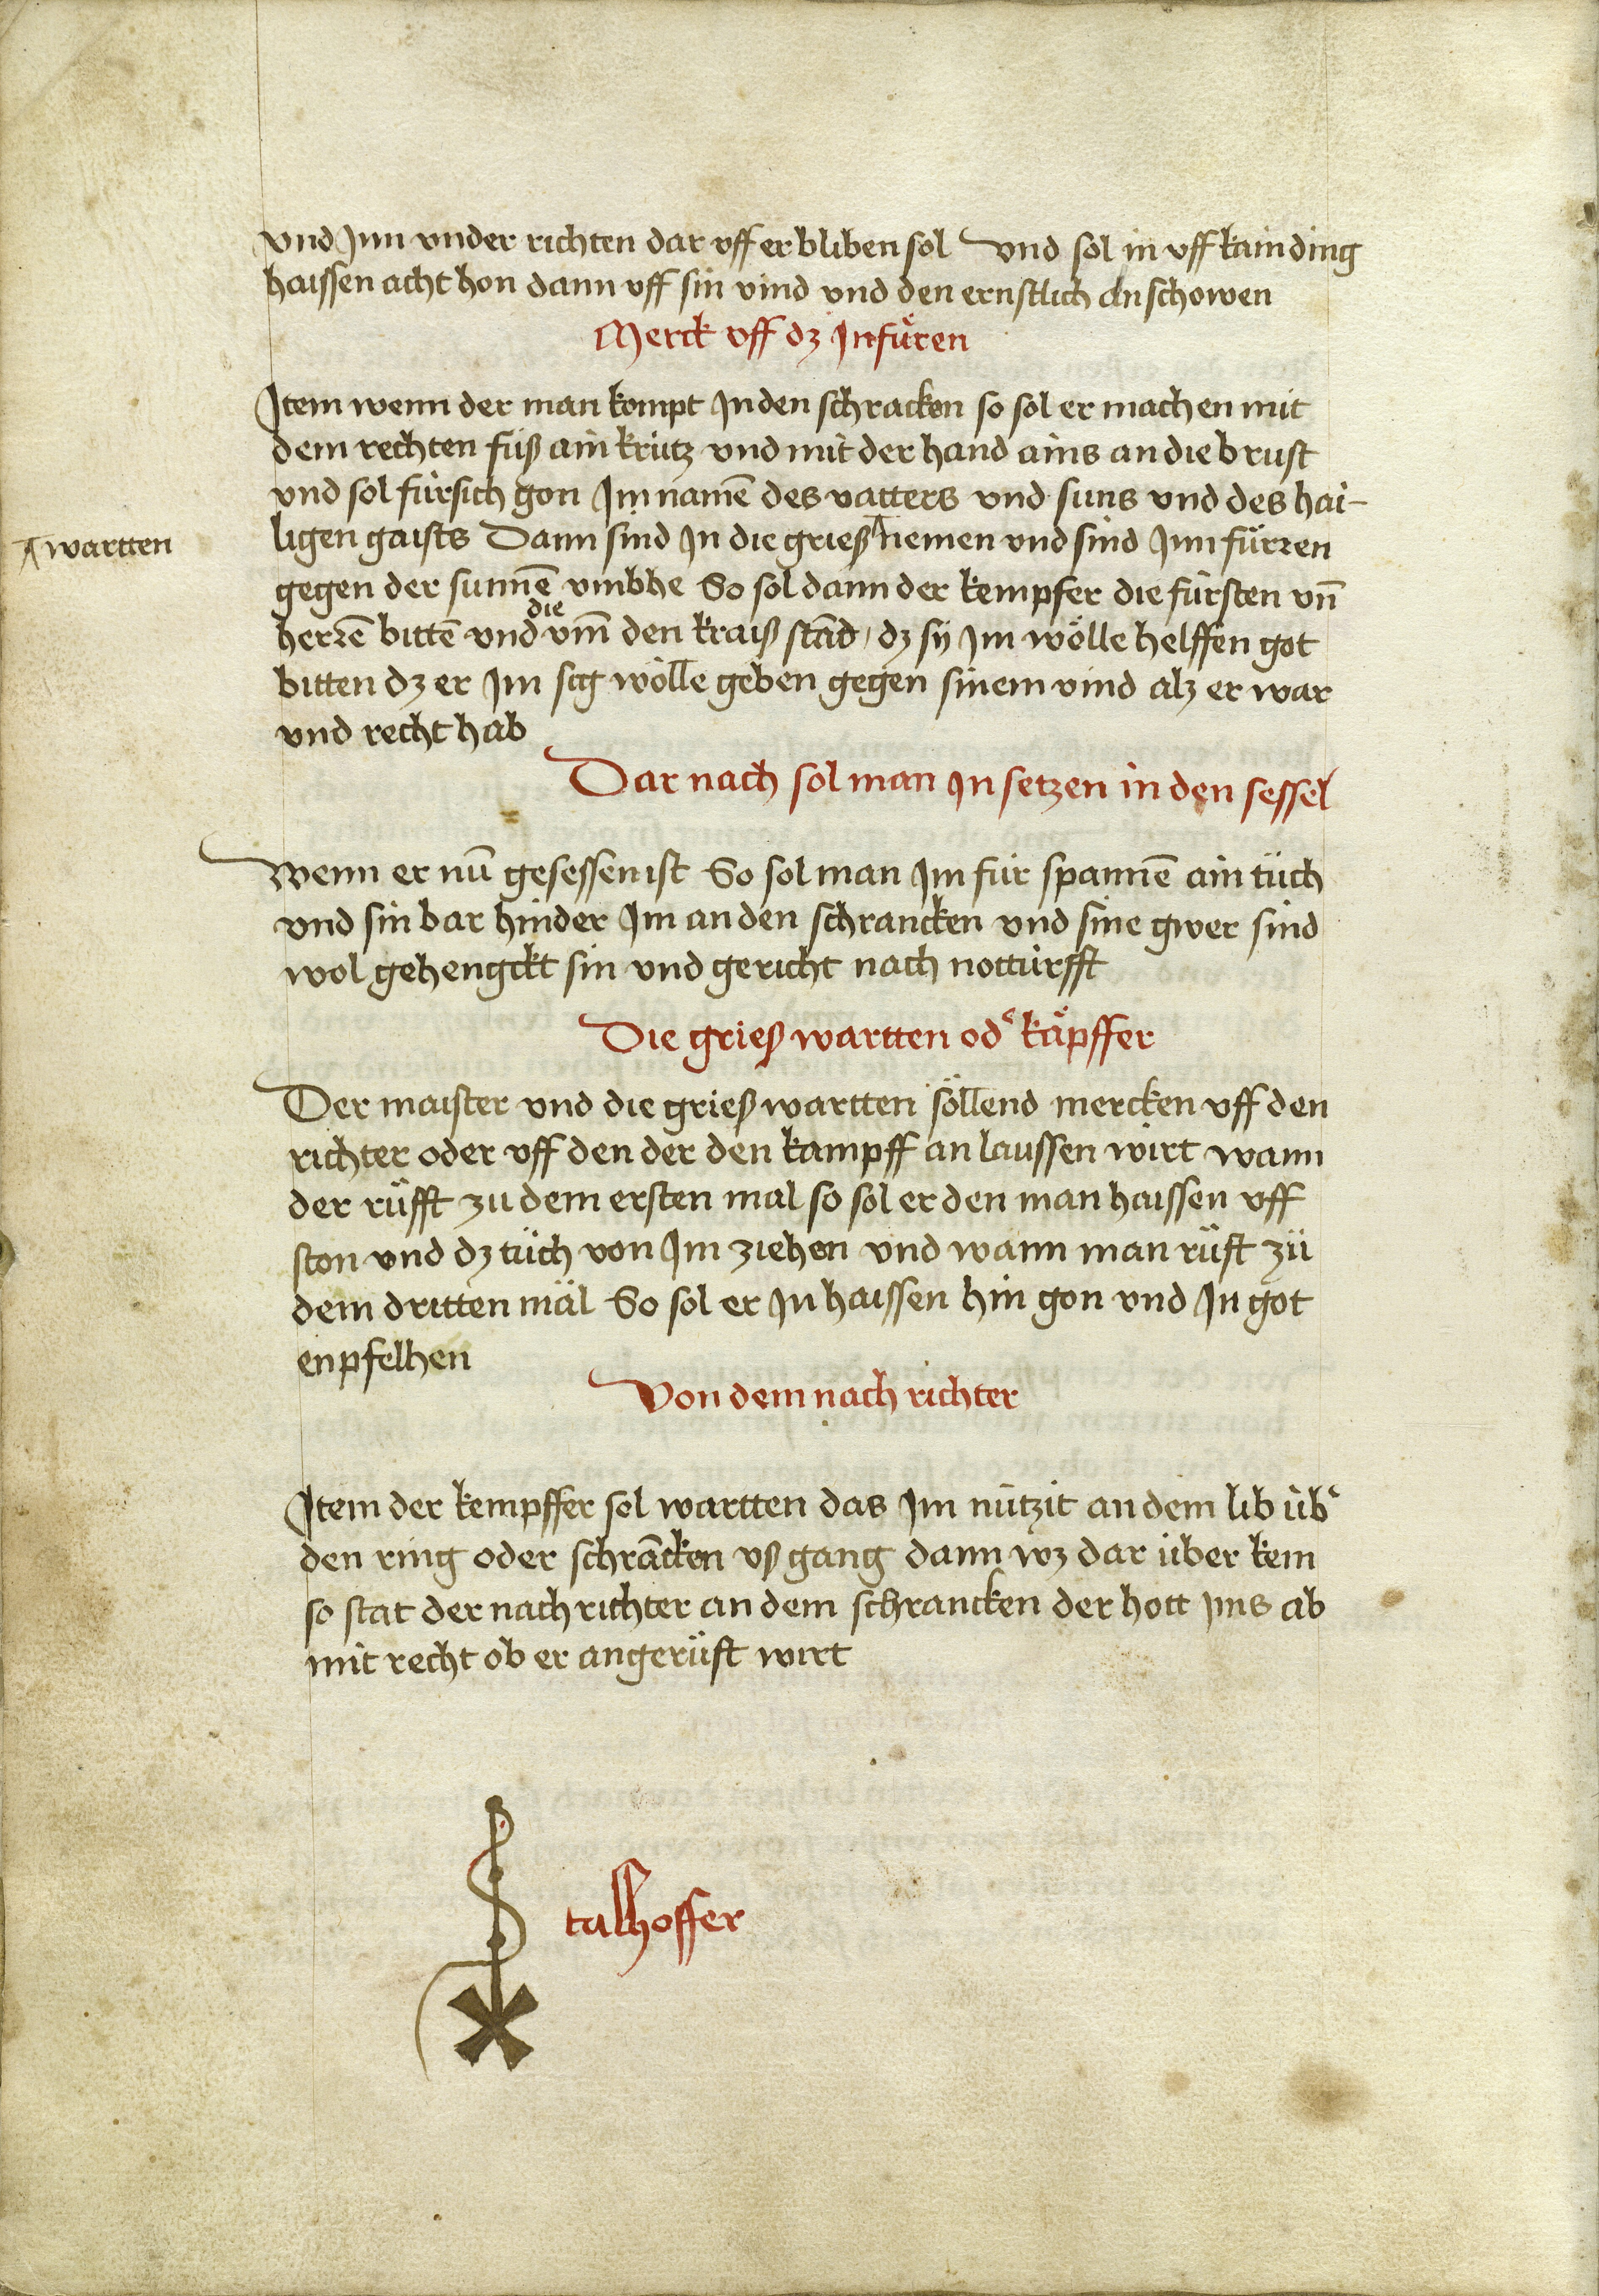 vnd Jnn vnder richten dar vff er bliben sol vnd sol in vff kain ding
haissen acht hon dann vff sin vind vnd den ernstlich An schowen
Merck vff dz Jnfüͤren
Jtem wenn der man kompt Jn den schracken so sol er machen mit
dem rechten fuͦß ain krütz vnd mit der hand ains an die brust
vnd sol fürsich gon Jm namē des vatters vnd suns vnd des hai-
ligen gaists Dann sind Jn die grieß ^ nemen vnd sind Jnn fürren
^ wartten
gegen der sunnē vmbhe So sol dann der kempfer die fürsten vn̄
die
herrē bittē vnd vm̄ den kraiß stād / dz sÿ Jm wölle helffen got
bitten dz er Jm sig wölle geben gegen sinem vind alz er war
vnd recht hab
Dar nach sol man Jn setzen in den sessel
Wenn er nū gesessen ist So sol man Jm für spannē ain tüch
vnd sin bar hinder Jm an den schrancken vnd sine gwer sind
wol gehengckt sin vnd gericht nach notturfft
Die grieß wartten od͛ käpffer
Der maister vnd die grieß wartten söllend mercken vff den
richter oder vff den der den kampff an laussen wirt wann
der rüfft zu dem ersten mal so sol er den man haissen vff
ston vnd dz tüch von Jm ziehen vnd wann man rüft zü
dem dritten mäl So sol er Jn haissen hin gon vnd Jn got
enpfelhen
Von dem nach richter
Jtem der kempffer sol wartten das Jm nützit an dem lib üb͛
den ring oder schrācken vß gang dann wz dar über kem
so stat der nach richter an dem schrancken der hott jms ab
mit recht ob er angerüft wirt
talhoffer